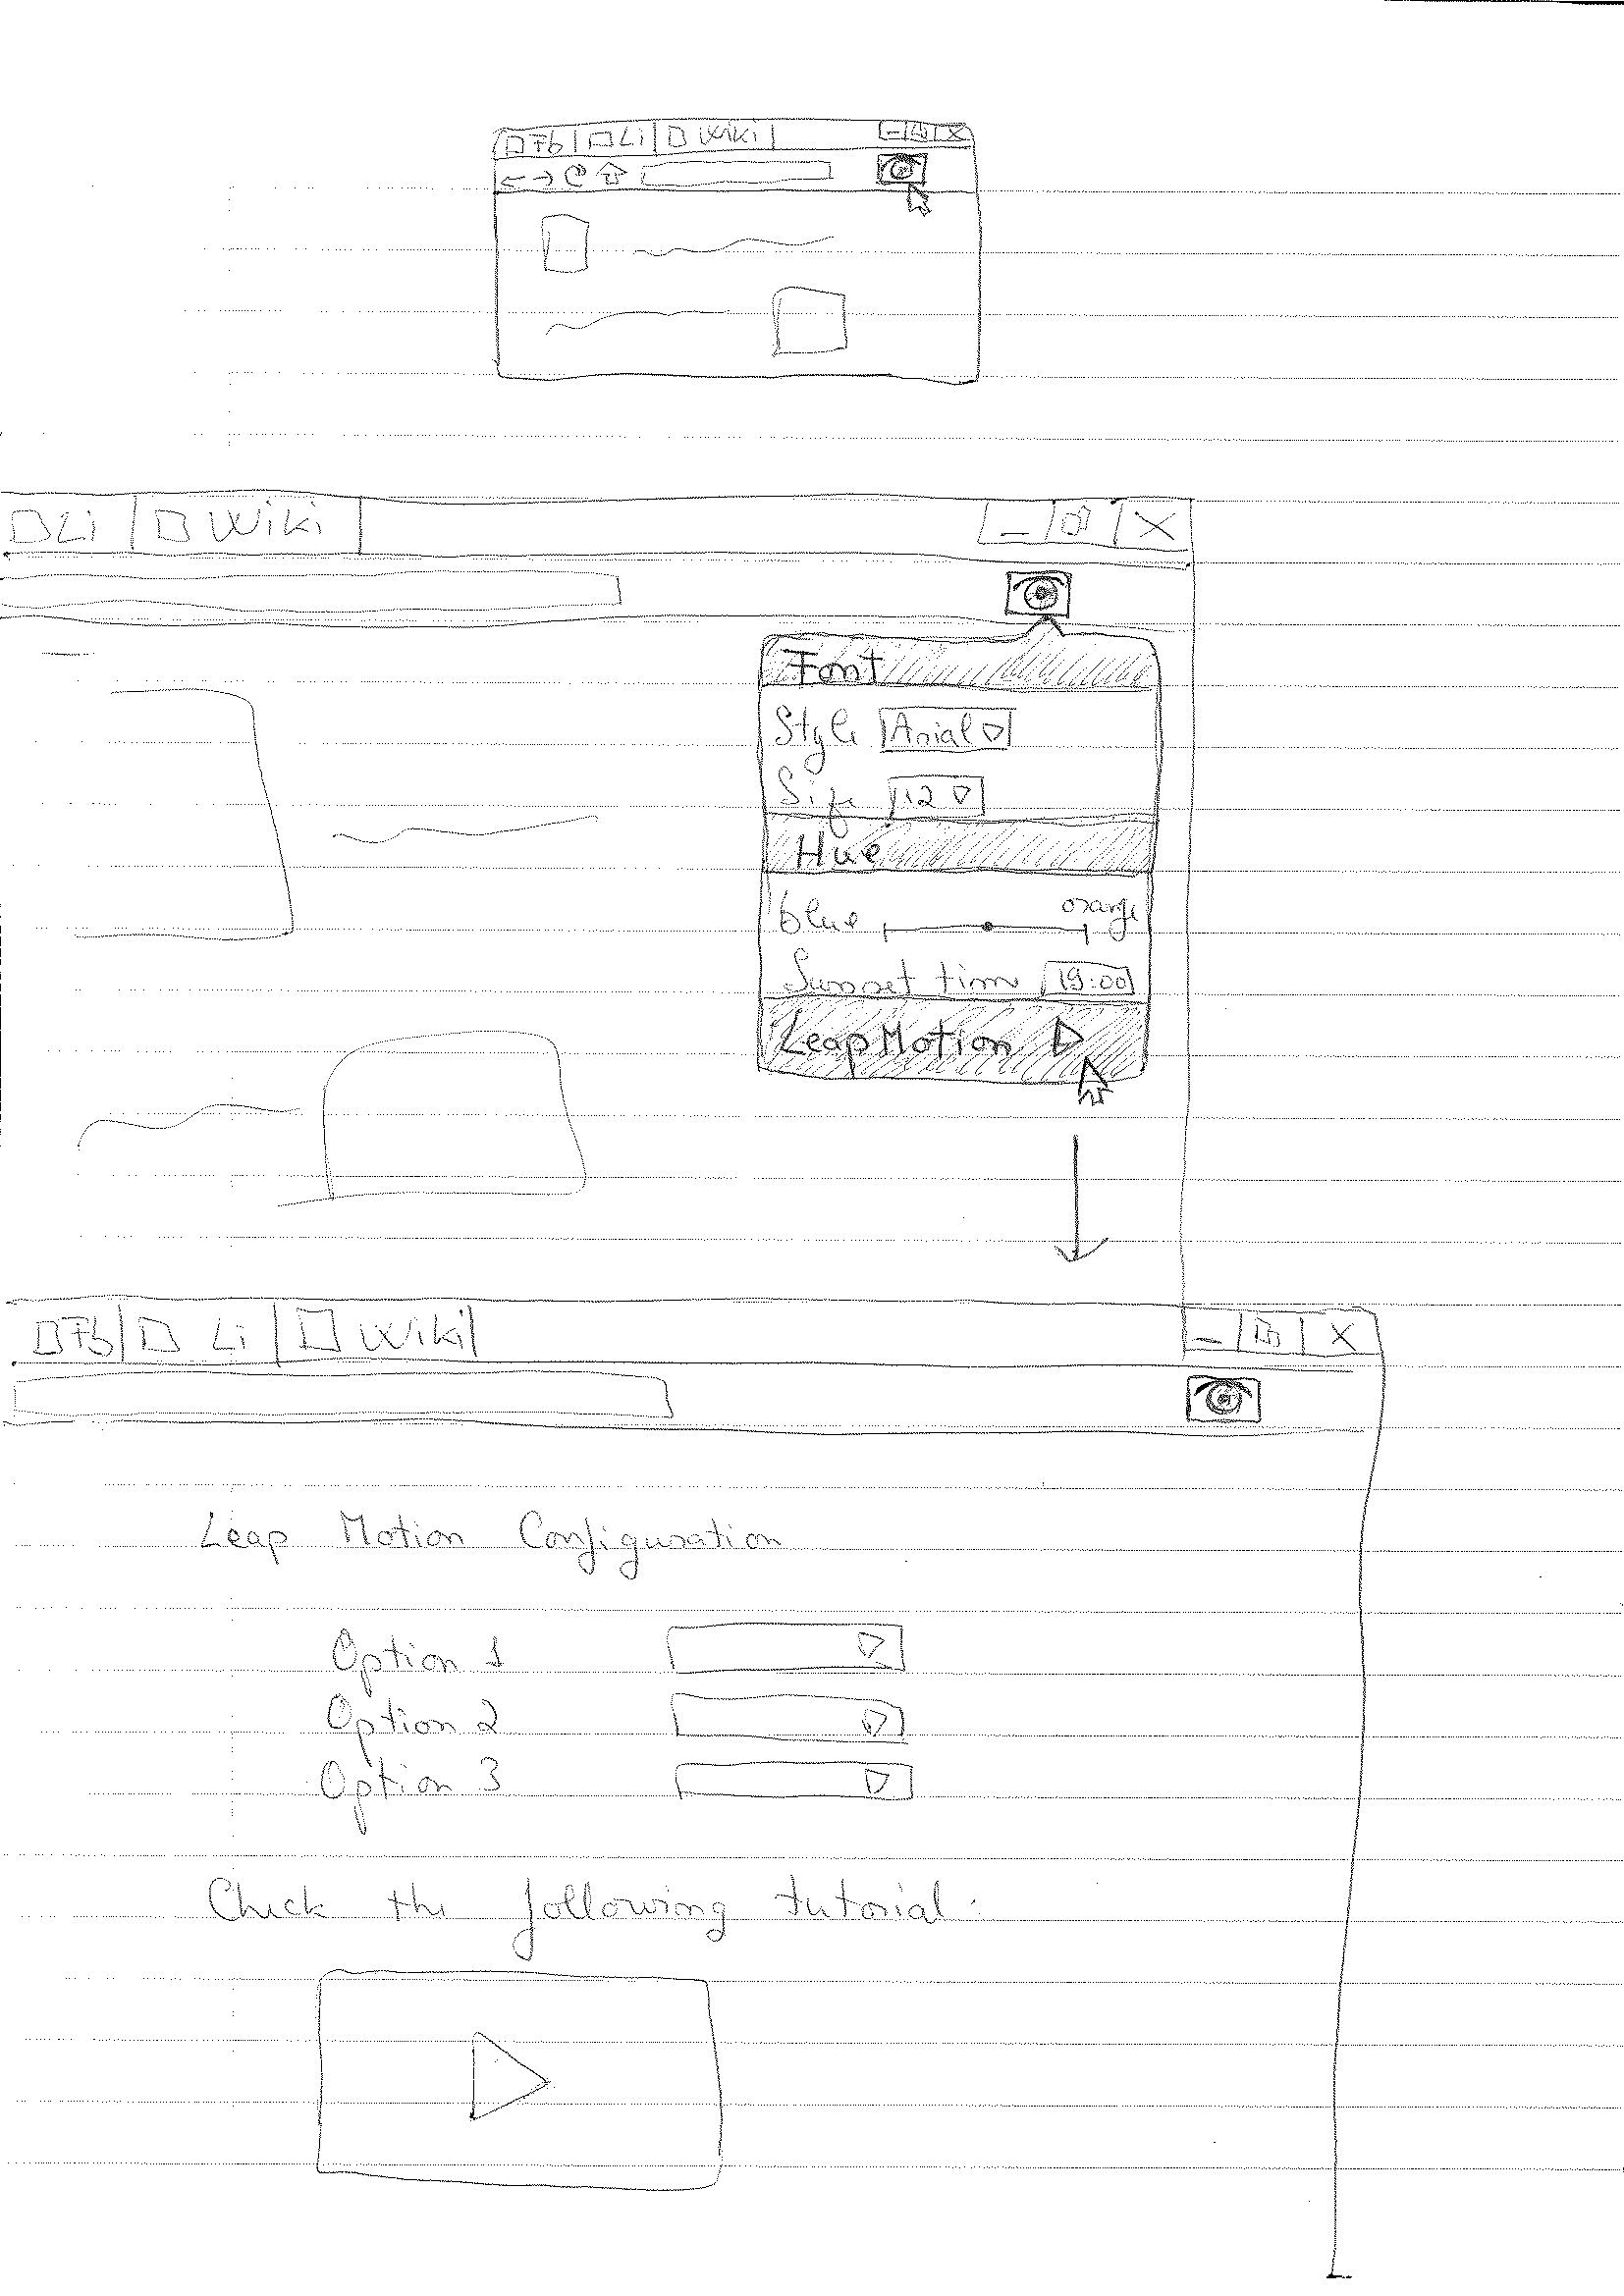 Fb Li Wiki
Li Wiki
Font
Style Arial
Size 12
Hue
blue orange
Sunset time 19:00
Leap Motion
Fb Li Wiki
Leap Motion Configuration
Option 1
Option 2
Option 3
Check the following tutorial: